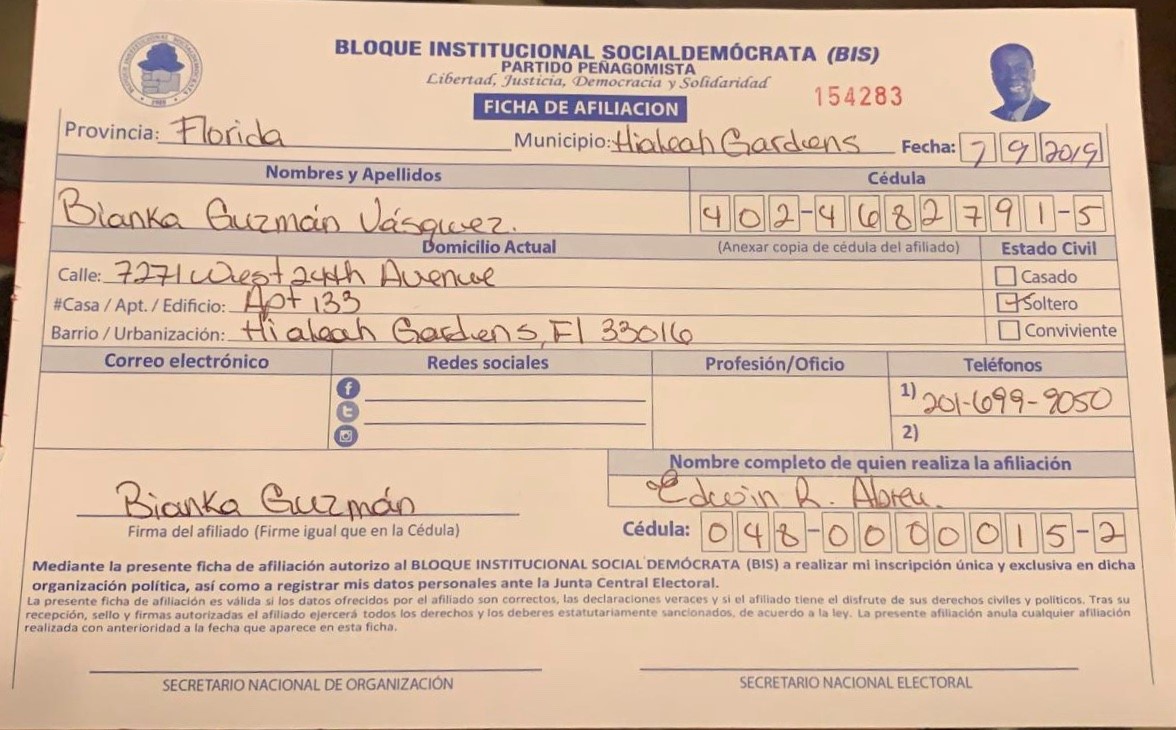 BLOQUE INSTITUCIONAL SOCIALDEMÓCRATA (BIS)
PARTIDO PEÑAGOMISTA
Libertad, Justicia, Democracia y Solidaridad
FICHA DE AFILIACION
154283
Provincia: Florida Municipio: Hialeah Gardens Fecha: 7 9 2019
Nombres y Apellidos Cédula
Bianka Guzmán Vásquez. 402-4682791-5
Domicilio Actual (Anexar copia de cédula del afiliado) Estado Civil
Calle: 7271 West 24th Avenue Casado
#Casa / Apt. / Edificio: Apt 133 Soltero
Barrio / Urbanización: Hialeah Gardens, Fl 33016 Conviviente
Correo electrónico Redes sociales Profesión/Oficio Teléfonos
1) 201-699-9050
2)
Nombre completo de quien realiza la afiliación
Bianka Guzmán Edwin R. Abreu.
Firma del afiliado (Firme igual que en la Cédula) Cédula: 048-0000015-2
Mediante la presente ficha de afiliación autorizo al BLOQUE INSTITUCIONAL SOCIAL DEMÓCRATA (BIS) a realizar mi inscripción única y exclusiva en dicha
organización política, así como a registrar mis datos personales ante la Junta Central Electoral.
La presente ficha de afiliación es válida si los datos ofrecidos por el afiliado son correctos, las declaraciones veraces y si el afiliado tiene el disfrute de sus derechos civiles y políticos. Tras su
recepción, sello y firmas autorizadas el afiliado ejercerá todos los derechos y los deberes estatutariamente sancionados, de acuerdo a la ley. La presente afiliación anula cualquier afiliación
realizada con anterioridad a la fecha que aparece en esta ficha.
SECRETARIO NACIONAL DE ORGANIZACIÓN SECRETARIO NACIONAL ELECTORAL